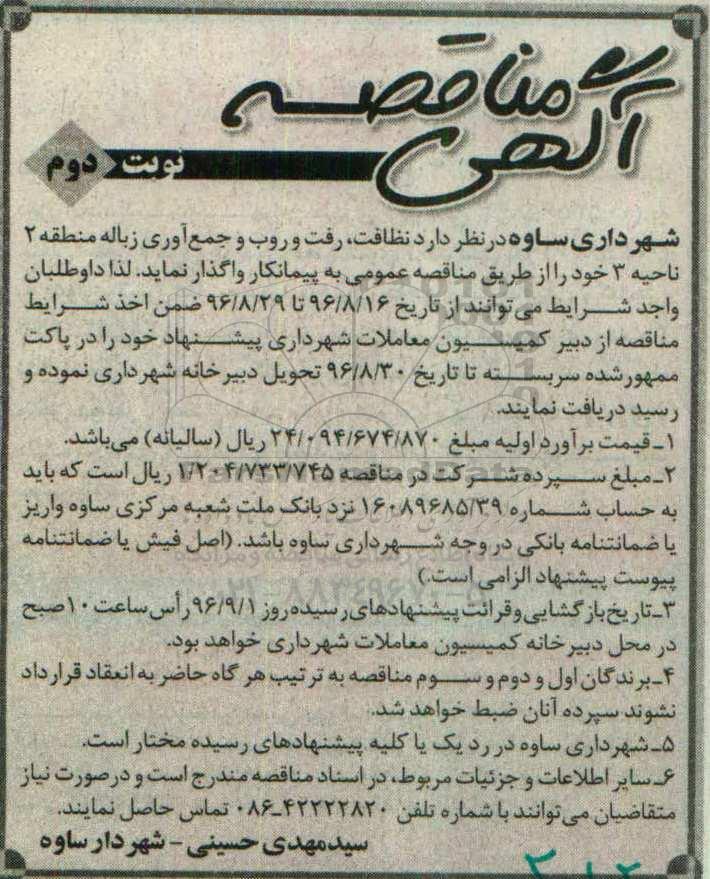 آگهی مناقصه
نوبت دوم
شهرداری ساوه درنظر دارد نظافت، رفت و روب و جمع‌آوری زباله منطقه ۲
ناحیه ۳ خود را از طریق مناقصه عمومی به پیمانکار واگذار نماید. لذا داوطلبان
واجد شرایط می‌توانند از تاریخ ۹۶/۸/۱۶ تا ۹۶/۸/۲۹ ضمن اخذ شرایط
مناقصه از دبیر کمیسیون معاملات شهرداری پیشنهاد خود را در پاکت
ممهور شده سربسته تا تاریخ ۹۶/۸/۳۰ تحویل دبیرخانه شهرداری نموده و
رسید دریافت نمایند.
۱ـ قیمت برآورد اولیه مبلغ ۲۴/۰۹۴/۶۷۴/۸۷۰ ریال (سالیانه) می‌باشد.
۲ـ مبلغ سپرده شرکت در مناقصه ۱/۲۰۴/۷۳۳/۷۴۵ ریال است که باید
به حساب شماره ۱۶۰۸۹۶۸۵/۳۹ نزد بانک ملت شعبه مرکزی ساوه واریز
یا ضمانتنامه بانکی در وجه شهرداری ساوه باشد. (اصل فیش یا ضمانتنامه
پیوست پیشنهاد الزامی است.)
۳ـ تاریخ بازگشایی و قرائت پیشنهادهای رسیده روز ۹۶/۹/۱ رأس ساعت ۱۰ صبح
در محل دبیرخانه کمیسیون معاملات شهرداری خواهد بود.
۴ـ برندگان اول و دوم و سوم مناقصه به ترتیب هر گاه حاضر به انعقاد قرارداد
نشوند سپرده آنان ضبط خواهد شد.
۵ـ شهرداری ساوه در رد یک یا کلیه پیشنهادهای رسیده مختار است.
۶ـ سایر اطلاعات و جزئیات مربوط، در اسناد مناقصه مندرج است و درصورت نیاز
متقاضیان می‌توانند با شماره تلفن ۴۲۲۲۲۸۲۰-۰۸۶ تماس حاصل نمایند.
سیدمهدی حسینی - شهردار ساوه